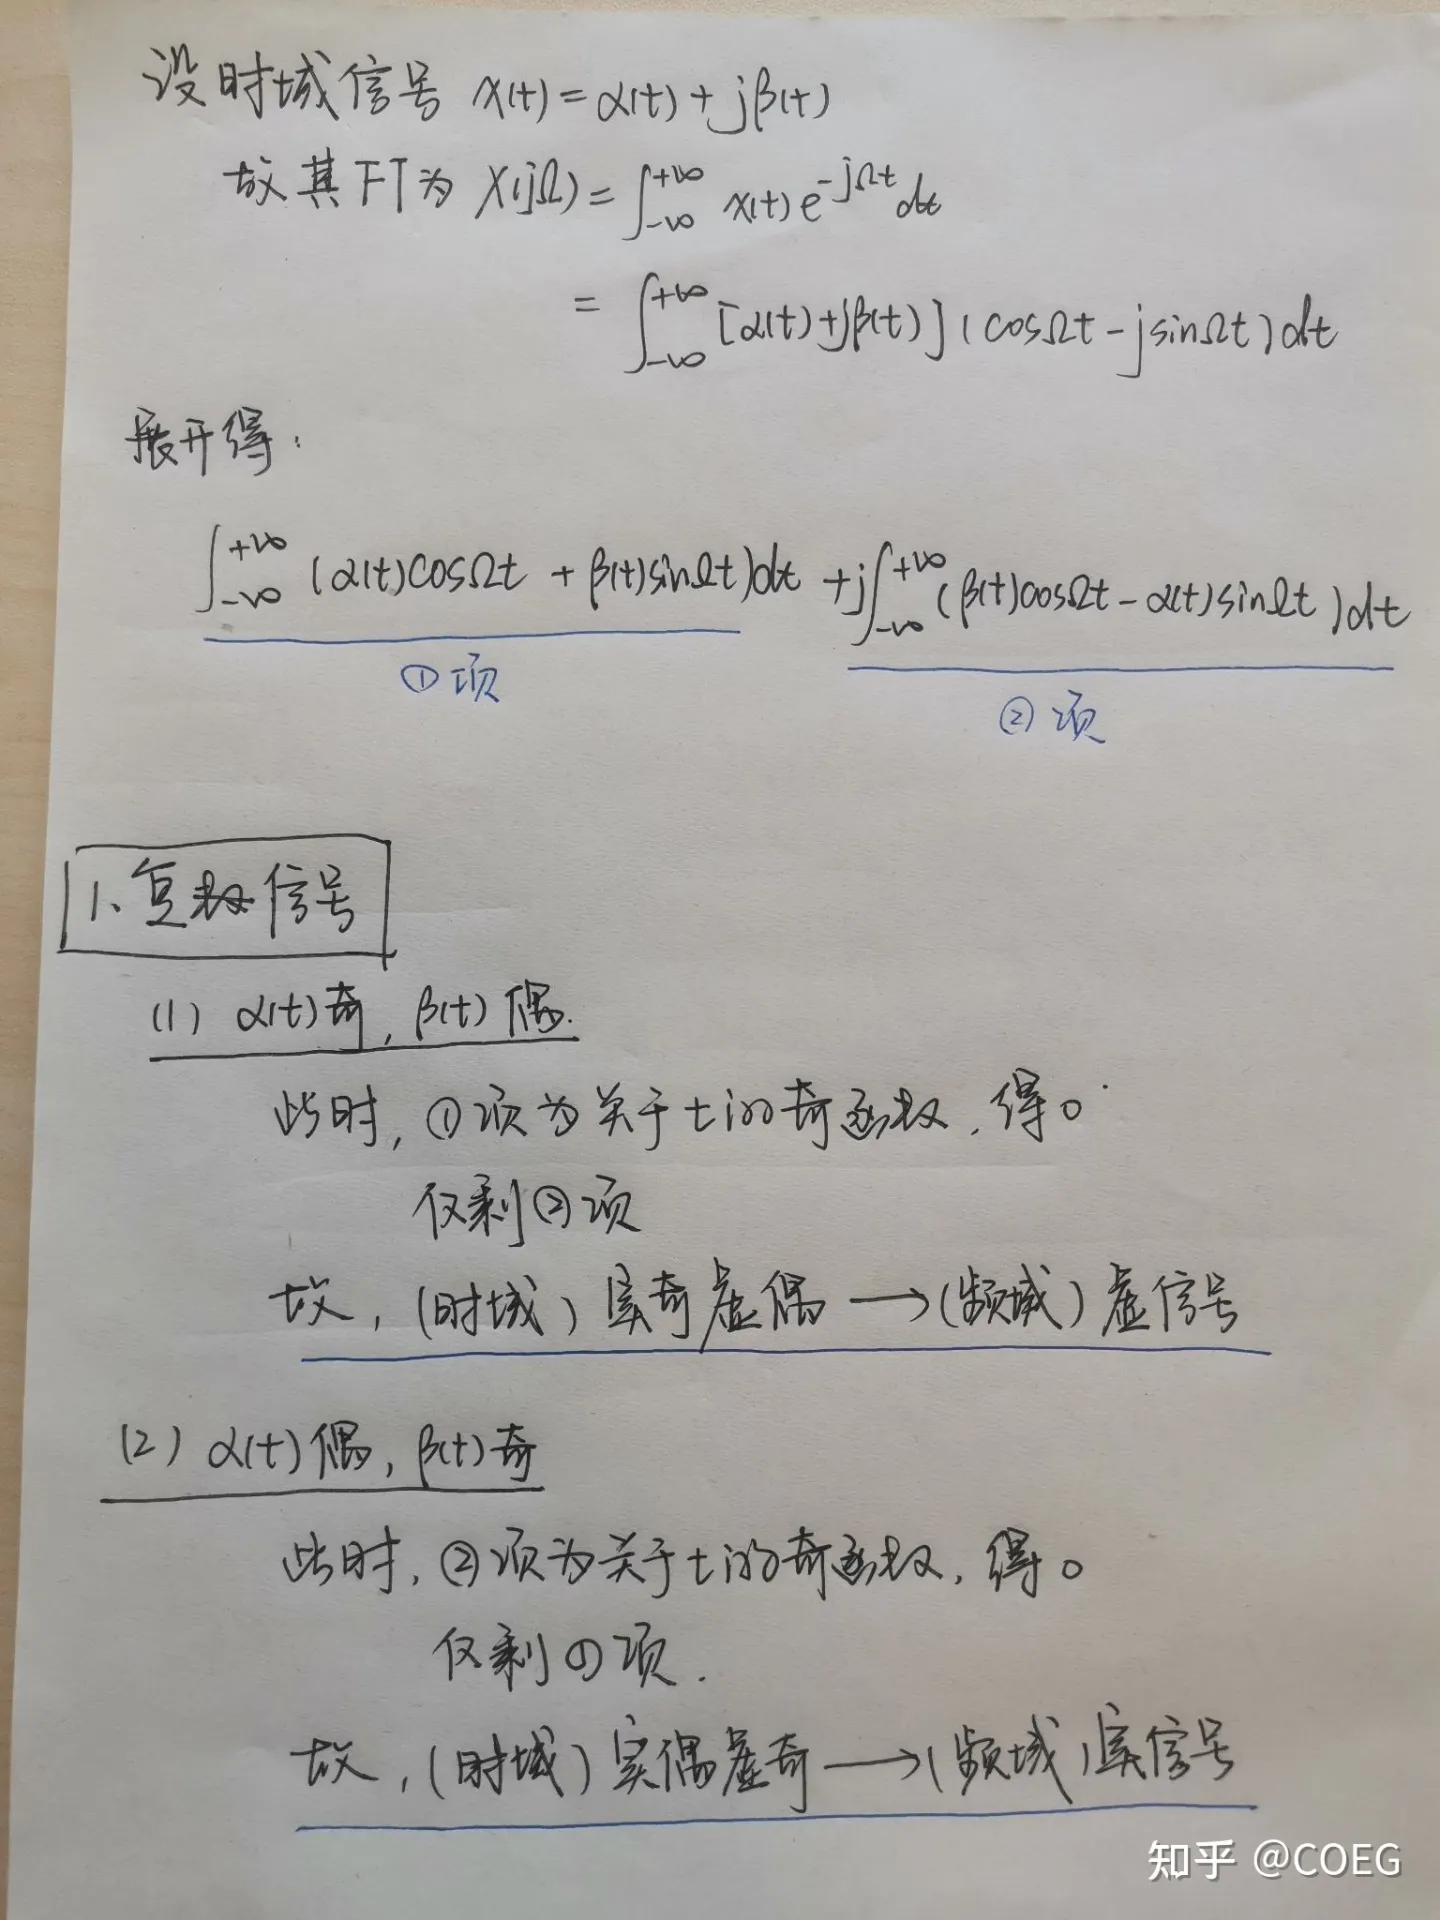 设时域信号 x(t) = α(t) + jβ(t)
故其FT为 X(jΩ) = ∫_{-∞}^{+∞} x(t) e^{-jΩt} dt
= ∫_{-∞}^{+∞} [α(t)+jβ(t)] (cosΩt - jsinΩt) dt
展开得:
∫_{-∞}^{+∞} (α(t)cosΩt + β(t)sinΩt)dt + j∫_{-∞}^{+∞} (β(t)cosΩt - α(t)sinΩt)dt
①项
②项
1、复数信号
(1) α(t)奇, β(t)偶.
此时, ①项为关于t的奇函数, 得0
仅剩②项
故, (时域) 实奇虚偶 → (频域) 虚信号
(2) α(t)偶, β(t)奇
此时, ②项为关于t的奇函数, 得0
仅剩①项.
故, (时域) 实偶虚奇 → (频域) 实信号
知乎 @COEG